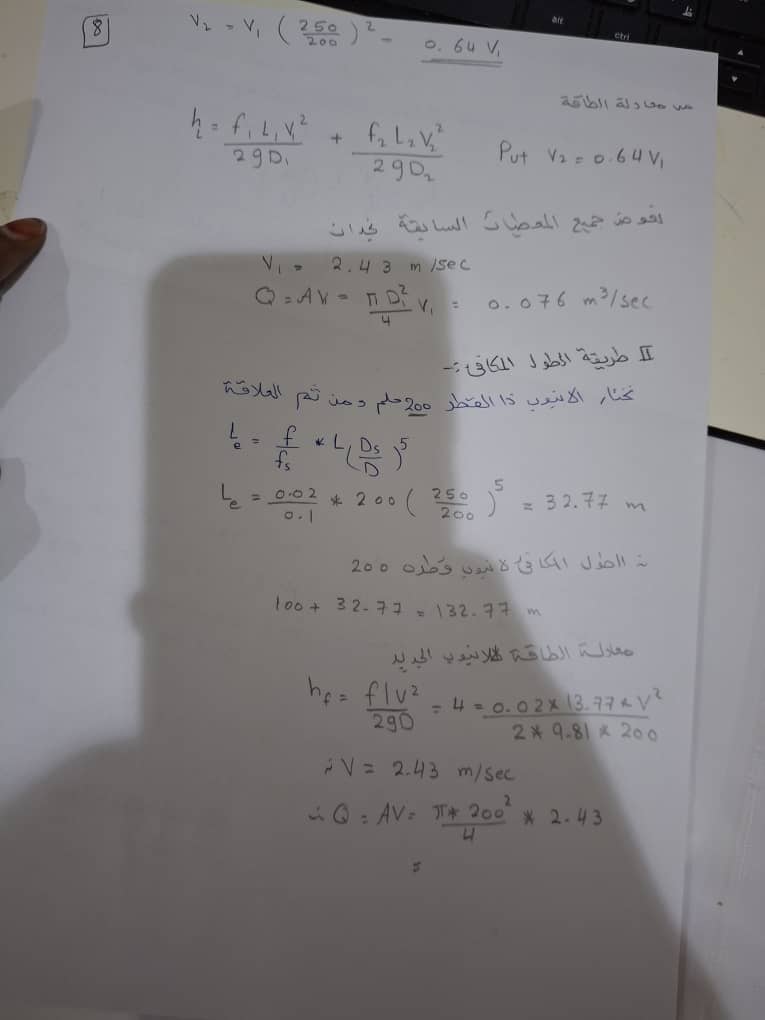 8
V₂ = V₁ (250/200)² = 0.64 V₁
من معادلة الطاقة
h_L = f₁ L₁ V₁²/2gD₁ + f₂ L₂ V₂²/2gD₂ Put V₂ = 0.64 V₁
نعوض جميع المعطيات السابقة نجد ان
V₁ = 2.43 m/sec
Q = AV = π D₁²/4 V₁ = 0.076 m³/sec
II طريقة الطول المكافئ :-
نختار الانبوب ذا القطر 200 ملم ومن ثم العلاقة
L_e = f/f_s * L (D_s/D)⁵
L_e = 0.02/0.1 * 200 (250/200)⁵ = 32.77 m
∴ الطول المكافئ لانبوب قطره 200
100 + 32.77 = 132.77 m
معادلة الطاقة للانبوب الجديد
h_f = f l v²/2gD = 4 = 0.02 * 13.77 * V²/2 * 9.81 * 200
∴ V = 2.43 m/sec
∴ Q = AV = π * 200²/4 * 2.43
=
alt
ctrl